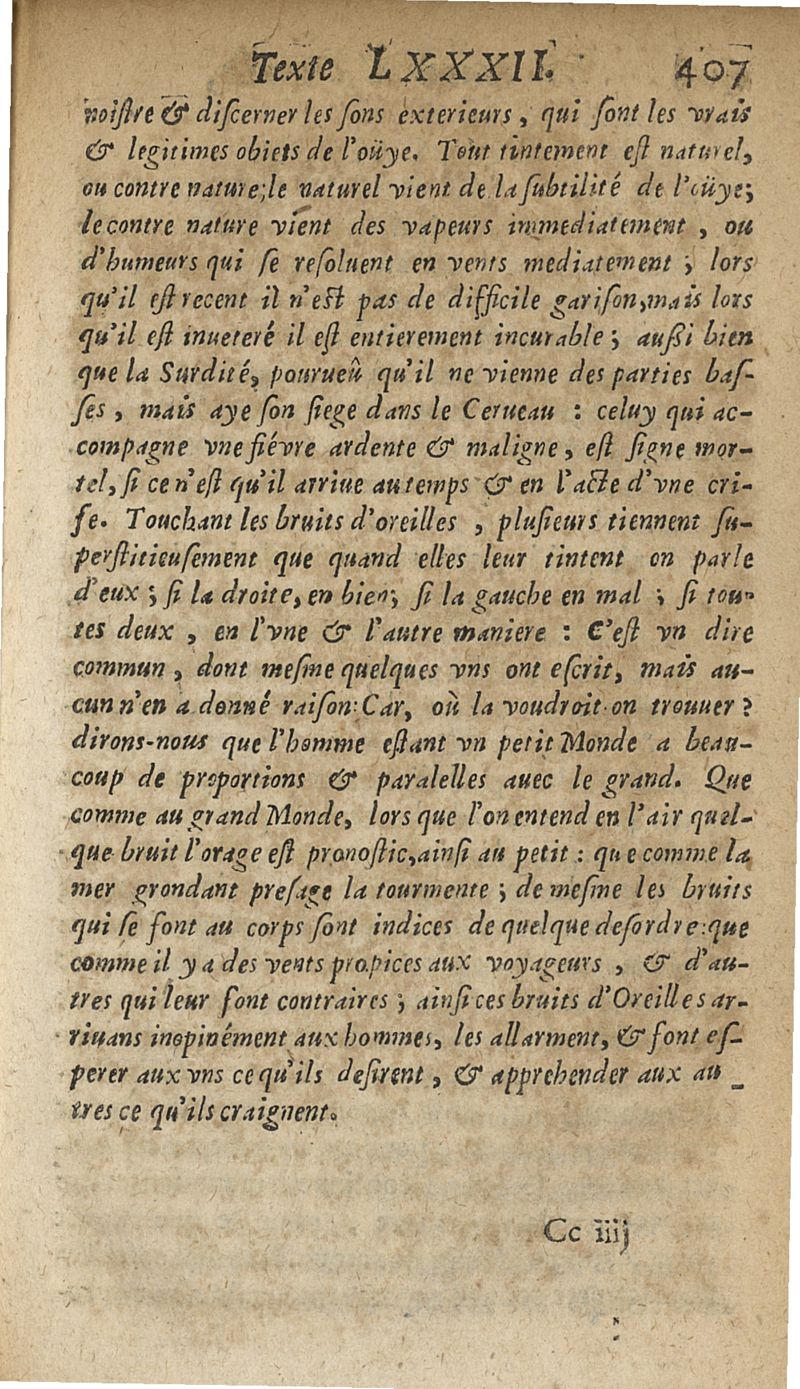 Texte LXXXII. 407
noiſtre & diſcerner les ſons exterieurs, qui ſont les vrais
& legitimes obiets de l'oüye. Tout tintement eſt naturel,
ou contre nature; le naturel vient de la ſubtilité de l'oüye;
le contre nature vient des vapeurs immediatement, ou
d'humeurs qui ſe reſoluent en vents mediatement; lors
qu'il eſt recent il n'eſt pas de difficile gariſon, mais lors
qu'il eſt inueteré il eſt entierement incurable; auſſi bien
que la Surdité, pourueû qu'il ne vienne des parties baſ-
ſes, mais aye ſon ſiege dans le Cerueau : celuy qui ac-
compagne vne fiévre ardente & maligne, eſt ſigne mor-
tel, ſi ce n'eſt qu'il arriue au temps & en l'acte d'vne cri-
ſe. Touchant les bruits d'oreilles, pluſieurs tiennent ſu-
perſtitieuſement que quand elles leur tintent on parle
d'eux; ſi la droite, en bien; ſi la gauche en mal; ſi tou-
tes deux, en l'vne & l'autre maniere : C'eſt vn dire
commun, dont meſme quelques vns ont eſcrit, mais au-
cun n'en a donné raiſon: Car, où la voudroit-on trouuer ?
dirons-nous que l'homme eſtant vn petit Monde a beau-
coup de proportions & paralelles auec le grand. Que
comme au grand Monde, lors que l'on entend en l'air quel-
que bruit l'orage eſt pronoſtic, ainſi au petit : que comme la
mer grondant preſage la tourmente; de meſme les bruits
qui ſe font au corps ſont indices de quelque deſordre: que
comme il y a des vents propices aux voyageurs, & d'au-
tres qui leur ſont contraires; ainſi ces bruits d'Oreilles ar-
riuans inopinément aux hommes, les allarment, & font eſ-
perer aux vns ce qu'ils deſirent, & apprehender aux au_
tres ce qu'ils craignent.
Cc iiij